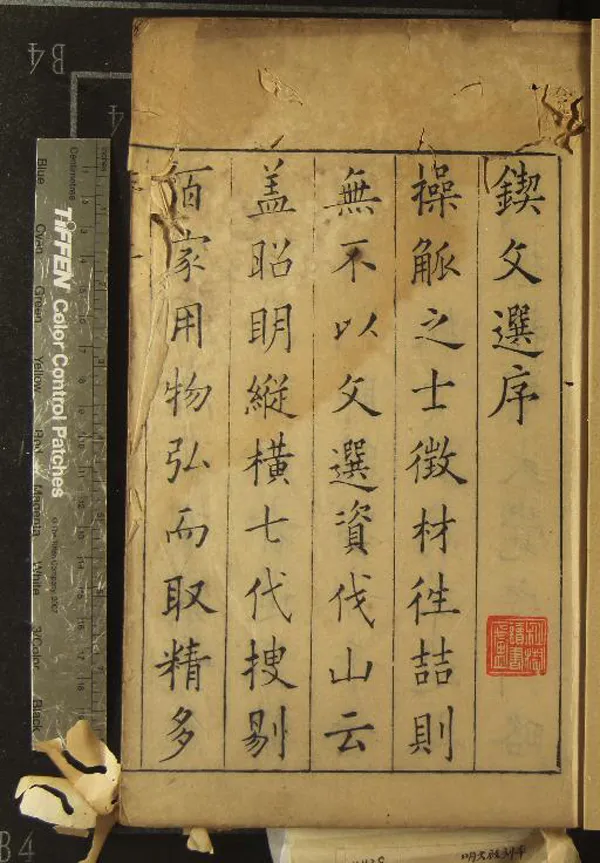 鍥文選序
操觚之士徵材徃詰則
無不以文選資伐山云
盖昭明縱橫七代搜剔
百家用物弘而取精多
B4
4
B4
inches
Centimetres
TIFFEN Color Control Patches
Blue
Cyan
Green
Yellow
Red
Magenta
White
3/Color
Black